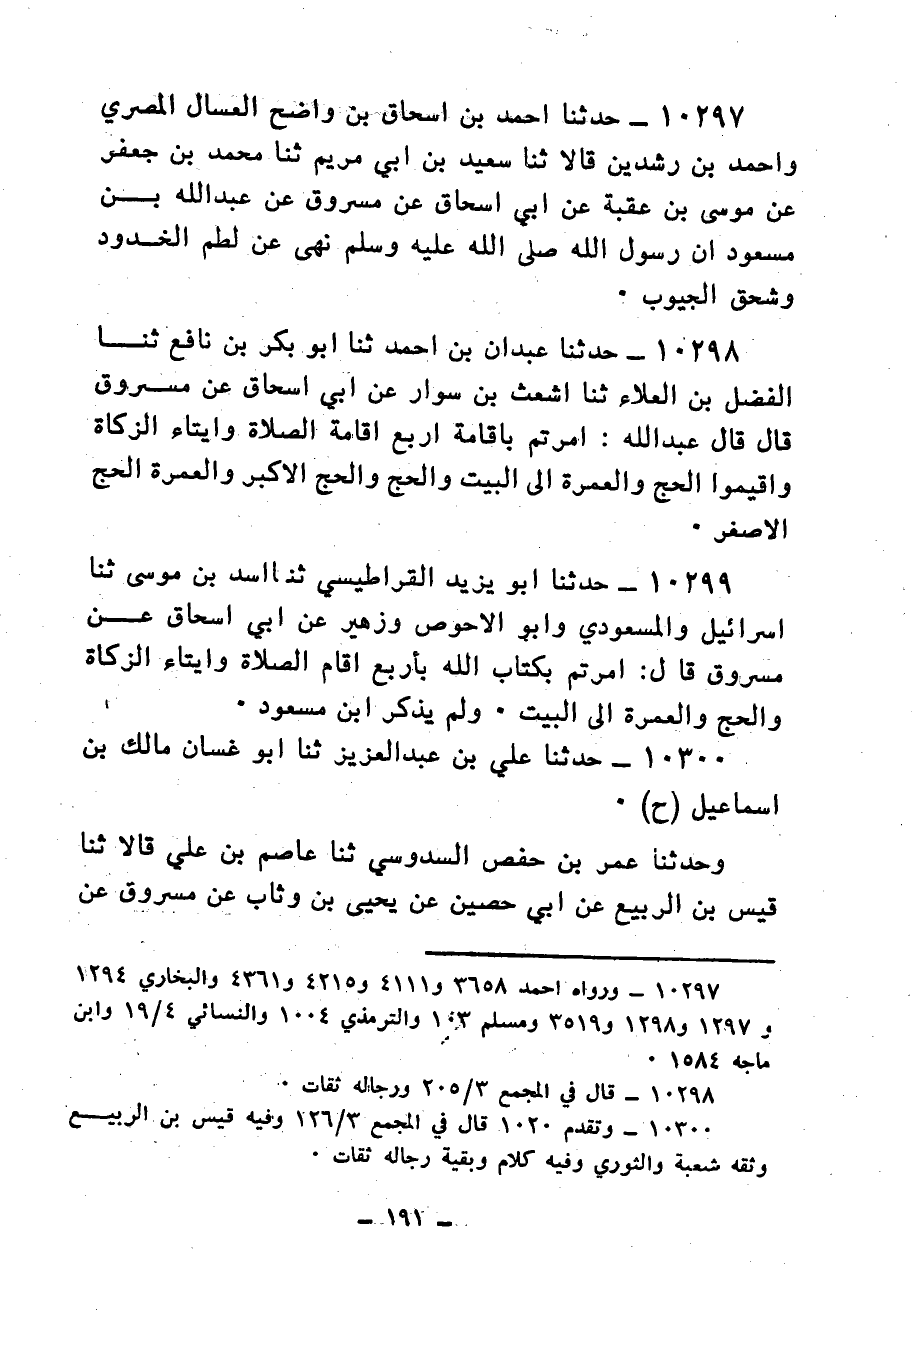 ١٠٢٩٧ ـ حدثنا احمد بن اسحاق بن واضح العسال المصري
واحمد بن رشدين قالا ثنا سعيد بن ابي مريم ثنا محمد بن جعفر
عن موسى بن عقبة عن ابي اسحاق عن مسروق عن عبدالله بـــن
مسعود ان رسول الله صلى الله عليه وسلم نهى عن لطم الخـدود
وشحق الجيوب ٠
١٠٢٩٨ ـ حدثنا عبدان بن احمد ثنا ابو بكر بن نافع ثنـــا
الفضل بن العلاء ثنا اشعث بن سوار عن ابي اسحاق عن مســروق
قال قال عبدالله : امرتم باقامة اربع اقامة الصلاة وايتاء الزكاة
واقيموا الحج والعمرة الى البيت والحج والحج الاكبر والعمرة الحج
الاصفر ٠
١٠٢٩٩ ـ حدثنا ابو يزيد القراطيسي ثنا اسد بن موسى ثنا
اسرائيل والمسعودي وابو الاحوص وزهير عن ابي اسحاق عـــن
مسروق قا ل: امرتم بكتاب الله بأربع اقام الصلاة وايتاء الزكاة
والحج والعمرة الى البيت ٠ ولم يذكر ابن مسعود ٠
١٠٣٠٠ ـ حدثنا علي بن عبدالعزيز ثنا ابو غسان مالك بن
اسماعيل (ح) ٠
وحدثنا عمر بن حفص السدوسي ثنا عاصم بن علي قالا ثنا
قيس بن الربيع عن ابي حصين عن يحيى بن وثاب عن مسروق عن
١٠٢٩٧ ـ ورواه احمد ٣٦٥٨ و٤١١١ و٤٢١٥ و٤٣٦١ والبخاري ١٢٩٤
و ١٢٩٧ و١٢٩٨ و٣٥١٩ ومسلم والترمذي ١٠٠٤ والنسائي ١٩/٤ وابن
ماجه ١٥٨٤ ٠
١٠٢٩٨ ـ قال في المجمع ٢٠٥/٣ ورجاله ثقات ٠
١٠٣٠٠ ـ وتقدم ١٠٢٠ قال في المجمع ١٢٦/٣ وفيه قيس بن الربيـــع
وثقه شعبة والثوري وفيه كلام وبقية رجاله ثقات ٠
ـ ١٩١ ـ